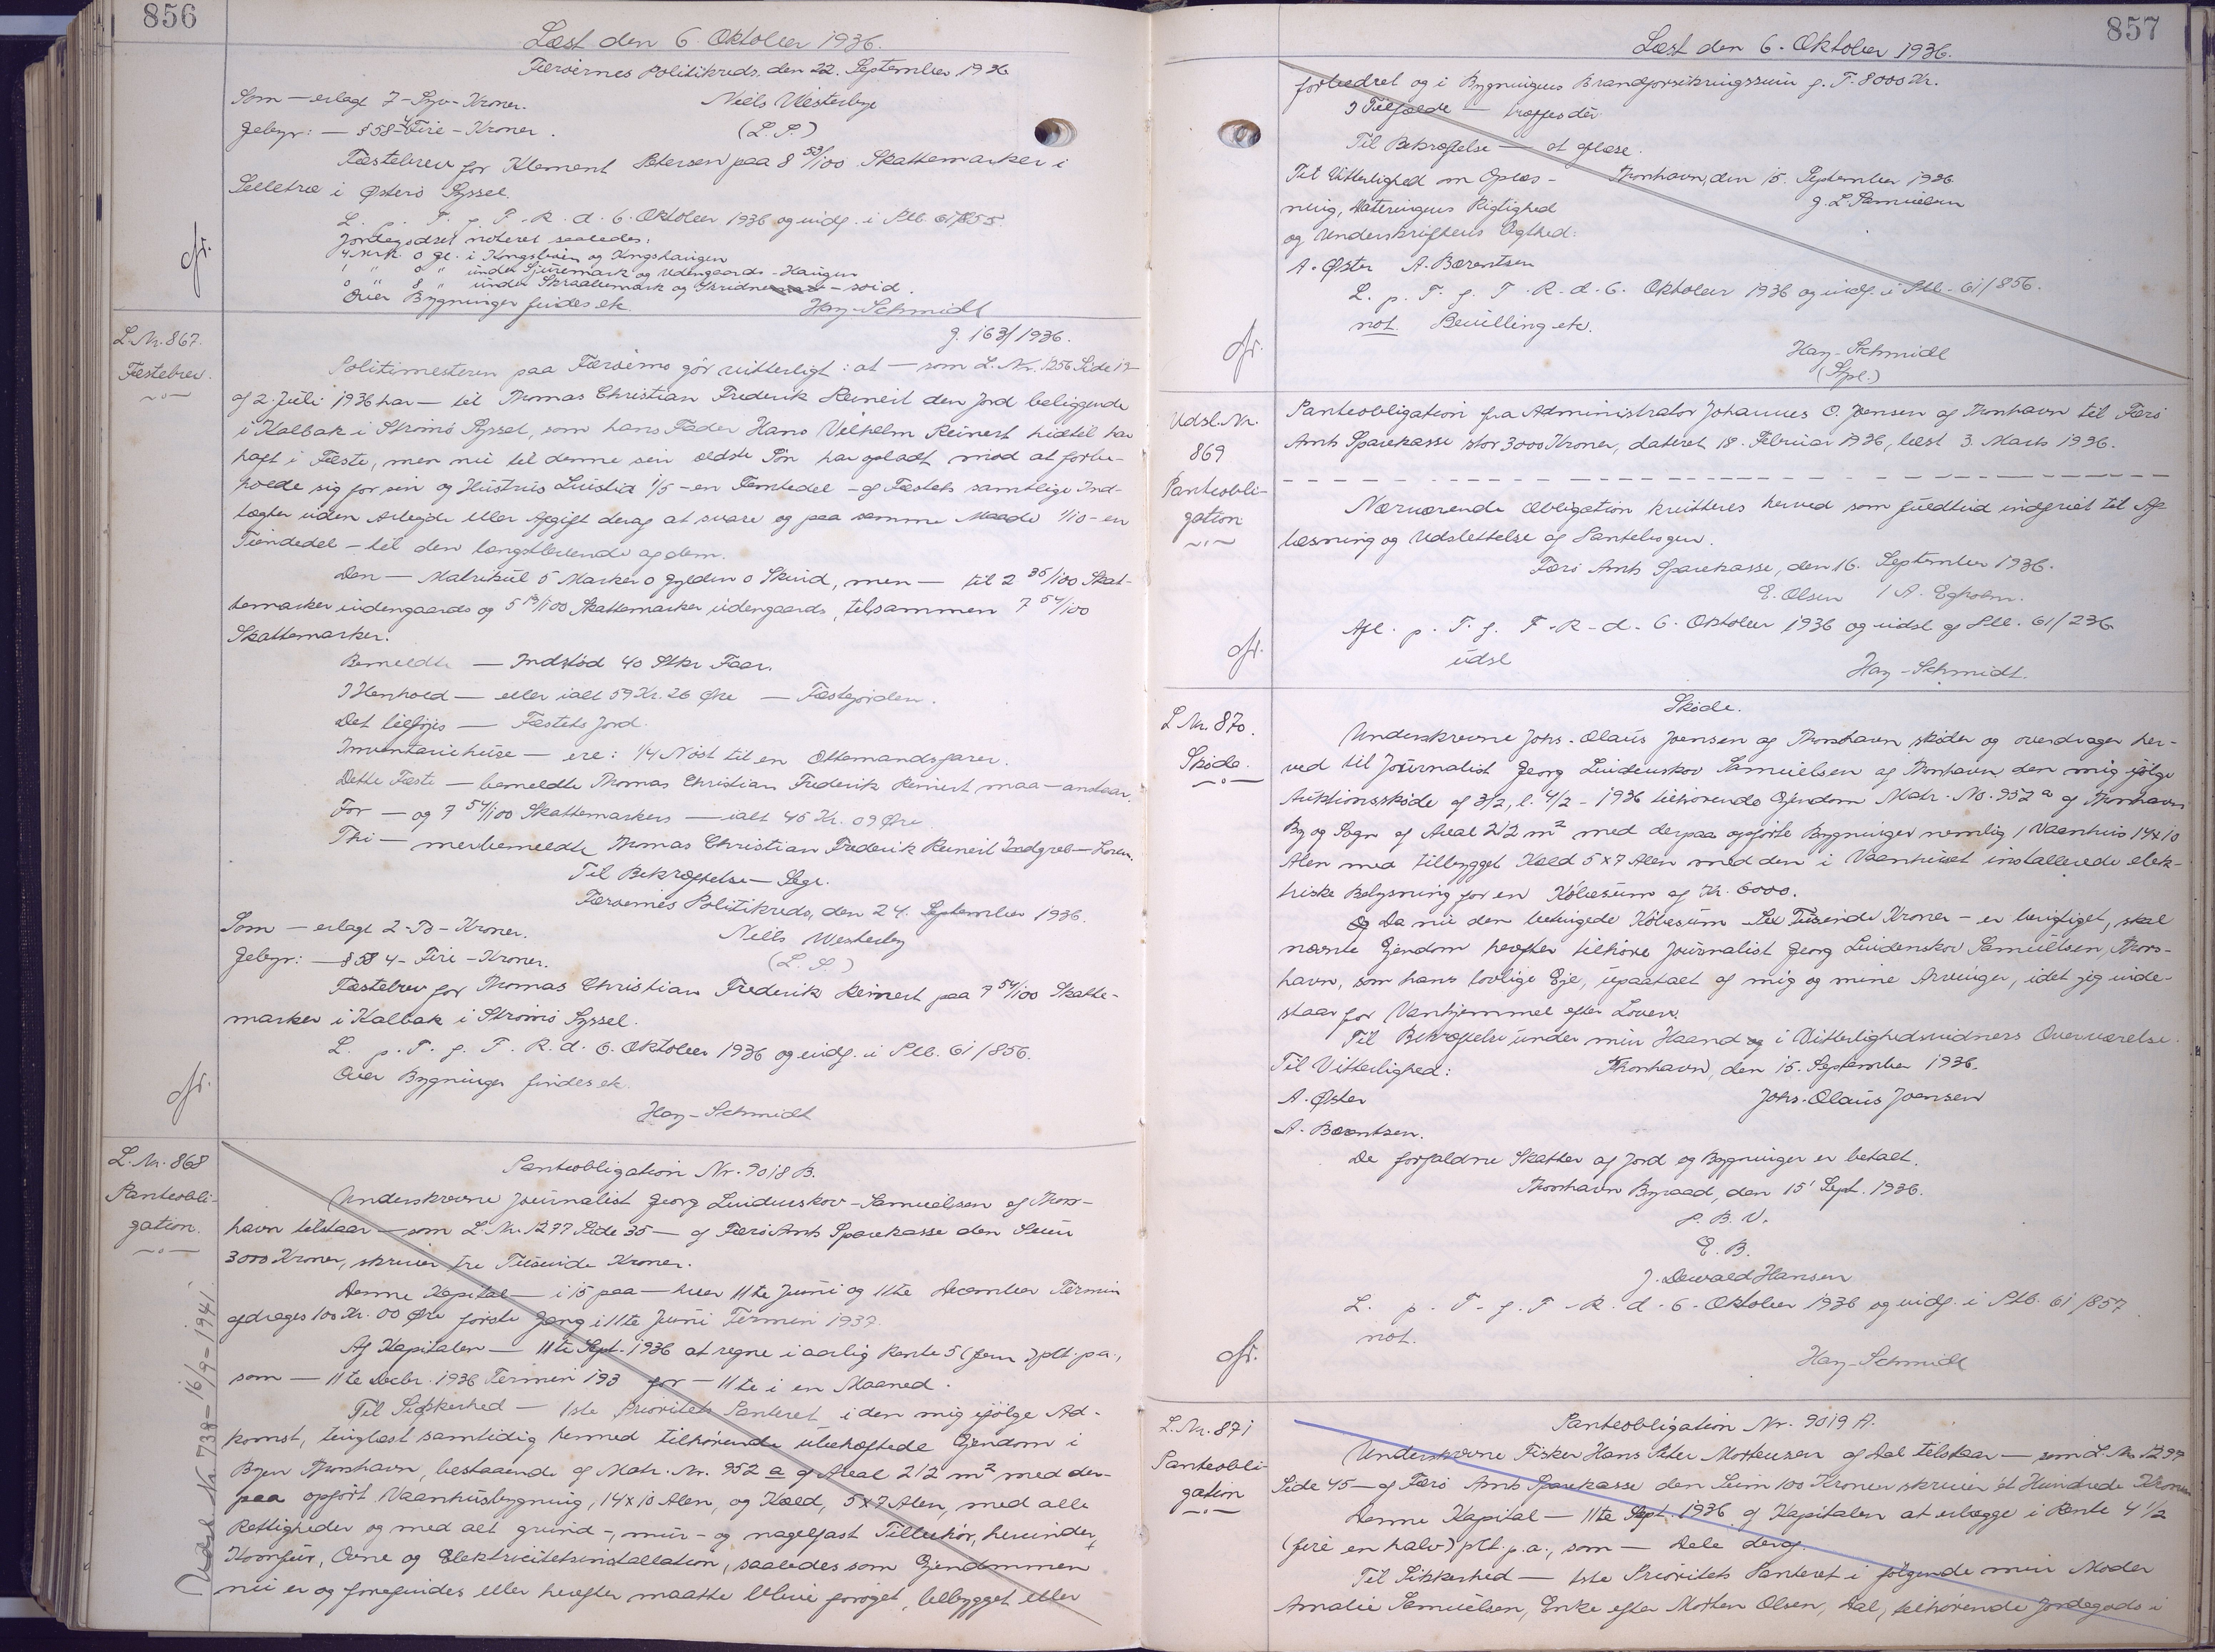 856
Læst den 6. Oktober 1936.
Færøernes Politikreds. den 22. September 1936
Som — erlagt 7 - Syv - Kroner.
Niels Westerbye
Gebyr: — § 58 - 4 Fire - Kroner.
(L. S.)
Fæstebrev for Klement Petersen paa 8 53/100 Skattemarker i
Selletræ i Østerø Syssel.
L. p. T. f. F. R. d. 6. Oktober 1936 og indf. i Ptb. 61/855.
Jordegodset noteret saaledes:
4 Mrk. 0 Gl. i Kongsbøin og Kongshaugen
1 " 0 " under Sjúremark og Udengaards - Haugen
0 " 8 " under Skraalemark og - svid.
Over Bygninger findes ek.
Hay-Schmidt
cfr.
L. Nr. 867.
Fæstebrev.
J. 163/1936.
Politimesteren paa Færøerne gör vitterligt: at — som L. Nr. 1256 Side 12 —
af 2. Juli 1936 har — til Thomas Christian Frederik Reinert den Jord beliggende
i Kalbak i Strømø Syssel, som hans Fader Hans Vilhelm Reinert hidtil har
haft i Fæste, men nu til denne sin ældste Søn har opladt mod at forbe-
holde sig for sin og Hustrus Livstid 1/5 - en Femtedel - af Fæstets samtlige Ind-
tægter uden Arbejde eller Afgift deraf at svare og paa samme Maade 1/10 - en
Tiendedel - til den længstlevende af dem.
Den — Matrikul 5 Marker 0 Gylden 0 Skind, men — til 2 35/100 Skat-
temarker indengaards og 5 19/100 Skattemarker udengaards, tilsammen 7 54/100
Skattemarker.
Bemeldte — Indstød 40 Stkr Faar.
I Henhold — eller ialt 59 Kr. 26 Øre — Fæstejorden.
Det tilføjes — Fæstets Jord.
Inventariehuse — ere: 1/4 Nøst til en Ottemandsfarer.
Dette Fæste — bemeldte Thomas Christian Frederik Reinert maa — ansaar.
For — og 7 54/100 Skattemarkers — ialt 45 Kr. 09 Øre
Thi — merbemeldte Thomas Christian Frederik Reinert Indgreb — Loven.
Til Bekræftelse — Segl.
Færøernes Politikreds, den 24. September 1936.
Som — erlagt 2 - To - Kroner.
Niels Westerby
Gebyr: — § 58 4 - Fire - Kroner.
(L. S.)
Fæstebrev for Thomas Christian Frederik Reinert paa 7 54/100 Skatte-
marker i Kalbak i Strømø Syssel.
L. p. T. f. F. R. d. 6. Oktober 1936 og indf. i Ptb. 61/856.
Over Bygninger findes ek.
Hay-Schmidt
cfr.
L. Nr. 868
Panteobli-
gation.
Udsl. Nr. 738 - 16/9 - 1941
Panteobligation Nr. 9018 B.
Underskrevne Journalist Georg Lindenskov - Samuelsen af Thors-
havn tilstaar — som L. Nr. 1277 Side 35 — af Færø Amts Sparekasse den Sum
3000 Kroner, skriver tre Tusinde Kroner.
Denne Kapital — i 15 paa — hver 11te Juni og 11te December Termin
afdrages 100 Kr. 00 Øre første Gang i 11te Juni Termin 1937.
Af Kapitalen — 11te Sept. 1936 at regne i aarlig Rente 5 (fem) pCt. p.a.,
som — 11te Decbr. 1936 Termin 193 for — 11te i en Maaned.
Til Sikkerhed — 1ste Prioritets Panteret i den mig ifølge Ad-
komst, tinglæst samtidig hermed tilhørende ubehæftede Ejendom i
Byen Thorshavn, bestaaende af Matr. Nr. 952 a af Areal 212 m² med der-
paa opført Vaanhusbygning, 14x10 Alen, og Kæld, 5x7 Alen, med alle
Rettigheder og med alt grund-, mur- og nagelfast Tilbehör, herunder
Komfur, Ovne og Elektricitetsinstallation, saaledes som Ejendommen
nu er og forefindes eller herefter maatte blive forøget, tilbygget eller
857
Læst den 6. Oktober 1936.
forbedret og i Bygningens Brandforsikringssum p. T. 8000 Kr.
I Tilfælde — træffes dér.
Til Bekræftelse — at aflæse.
Til Vitterlighed om Oplæs-
Thorshavn, den 15. September 1936
ning, Dateringens Rigtighed
G. L. Samuelsen
og Underskriftens Ægthed:
A. Øster A. Bærentsen
L. p. T. f. F. R. d. 6. Oktober 1936 og indf. i Ptb. 61/856.
not. Bevilling ek.
Hay-Schmidt
cfr.
Udsl. Nr.
869
Panteobli-
gation
Panteobligation fra Administrator Johannes O. Joensen af Thorshavn til Færø
Amts Sparekasse stor 3000 Kroner, dateret 18. Februar 1936, læst 3. Marts 1936.
Nærværende Obligation kvitteres herved som fuldtud indfriet til Af-
læsning og Udslettelse af Pantebogen.
Færø Amts Sparekasse, den 16. September 1936.
E. Olsen / A. Egholm.
Afl. p. T. f. F. R. d. 6. Oktober 1936 og udsl af Ptb. 61/236
udsl
Hay-Schmidt.
cfr.
L. Nr. 870.
Skøde.
Skøde.
Underskrevne Johs. Olaus Joensen af Thorshavn skøder og overdrager her-
ved til Journalist Georg Lindenskov Samuelsen af Thorshavn den mig ifølge
Auktionsskøde af 3/2, l. 4/2 - 1936 tilhørende Ejendom Matr. No. 952 a af Thorshavn
By og Sogn af Areal 212 m² med derpaa opførte Bygninger nemlig 1 Vaanhus 14x10
Alen med tilbygget Kæld 5x7 Alen med den i Vaanhuset installerede elek-
triske Belysning for en Købesum af Kr. 6000.
Da nu den betingede Købesum Sex Tusinde Kroner - er berigtiget, skal
nævnte Ejendom herefter tilhøre Journalist Georg Lindenskov Samuelsen, Thors-
havn, som hans lovlige Eje, upaatalt af mig og mine Arvinger, idet jeg inde-
staar for Vanhjemmel efter Loven.
Til Bekræftelse under min Haand og i Vitterlighedsvidners Overværelse.
Til Vitterlighed:
Thorshavn, den 15. September 1936.
A. Øster
Johs. Olaus Joensen
A. Bærentsen.
De forfaldne Skatter af Jord og Bygninger er betalt.
Thorshavn Byraad, den 15' Sept. 1936.
P. B. V.
E. B.
J. Dewald Hansen
L. p. T. f. F. R. d. 6. Oktober 1936 og indf. i Ptb. 61/857
not.
Hay-Schmidt
cfr.
L. Nr. 871
Panteobli-
gation
Panteobligation Nr. 9019 A.
Underskrevne Fisker Hans Peter Mortensen af Dal tilstaar — som L. No. 1297
Side 45 — af Færø Amts Sparekasse den Sum 100 Kroner skriver ét Hundrede Kroner
Denne Kapital — 11te Sept. 1936 af Kapitalen at erlægge i Rente 4 1/2
(fire en halv) pCt. p.a., som — Dele deraf.
Til Sikkerhed — 1ste Prioritets Panteret i følgende min Moder
Amalie Samuelsen, Enke efter Morten Olsen, Dal, tilhørende Jordegods i